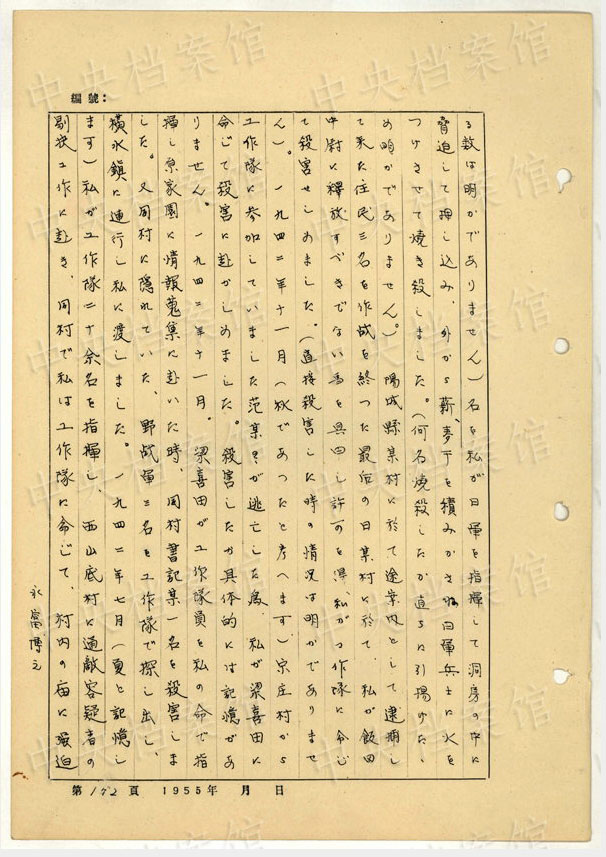 編號：
る数は明かでありません）名を私が日軍を指揮して洞房の中に
脅迫して押し込み、外から薪、麦丁を積みかさね日軍兵士に火を
つけさせて焼き殺しました。（何名焼殺したか直ちに引揚げた、
め明かでありません。）陽城縣某村に於て途案内として逮捕し
て来た住民三名を作戦を終つた最后の日某村に於て、私が飯田
中尉に釋放すべきでない旨を具申し許可を得、私が工作隊に命じ
て殺害せしめました。（直接殺害した時の情況は明かでありませ
ん）。一九四二年十一月（秋であつたと考へます）宗庄村から
工作隊に参加していました范某々が逃亡した為、私が梁喜田に
命じて殺害に赴かしめました。殺害したか具体的には記憶があ
りません。一九四二年十一月。梁喜田が工作隊員を私の命で指
揮し景家園に情報蒐集に赴いた時、同村書記某一名を殺害しま
した。又同村に隠れていた、野战軍三名を工作隊で探し出し、
横水鎮に連行し私に渡しました。一九四二年七月（夏と記憶し
ます）私が工作隊二十余名を指揮し、西山底村に通敵容疑者の
剔抉工作に赴き、同村で私は工作隊に命じて、村内の庙に强迫
永富博之
第172頁 1955年 月 日
中央档案馆